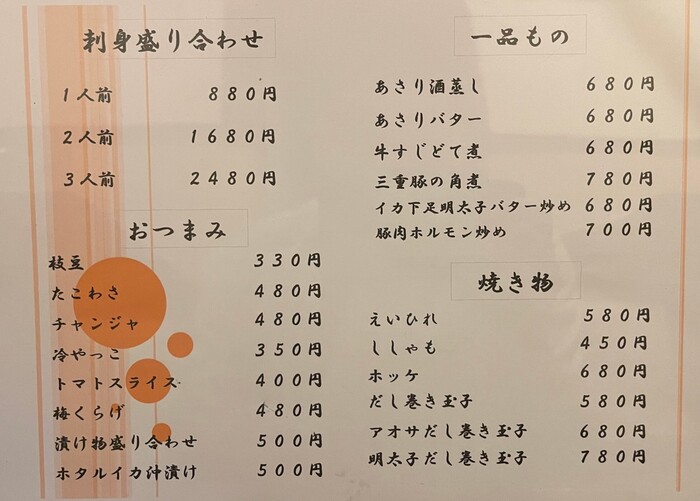 刺身盛り合わせ
1人前 880円
2人前 1680円
3人前 2480円
おつまみ
枝豆 330円
たこわさ 480円
チャンジャ 480円
冷やっこ 350円
トマトスライス 400円
梅くらげ 480円
漬け物盛り合わせ 500円
ホタルイカ沖漬け 500円
一品もの
あさり酒蒸し 680円
あさりバター 680円
牛すじどて煮 680円
三重豚の角煮 780円
イカ下足明太子バター炒め 680円
豚肉ホルモン炒め 700円
焼き物
えいひれ 580円
ししゃも 450円
ホッケ 680円
だし巻き玉子 580円
アオサだし巻き玉子 680円
明太子だし巻き玉子 780円